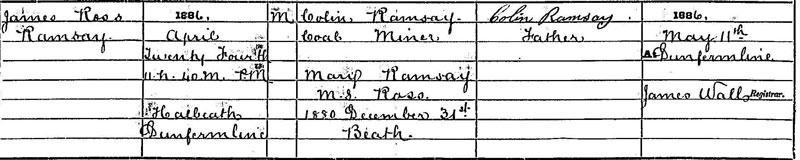 James Ross
Ramsay
1886,
April
Twenty Fourth
11 h. 40 m. P.M.
Halbeath
Dunfermline
M
Colin Ramsay.
Coal Miner
Mary Ramsay
M.S. Ross.
1880 December 31st
Beath.
Colin Ramsay.
Father
1886.
May 11th
At Dunfermline
James Wall
Registrar.